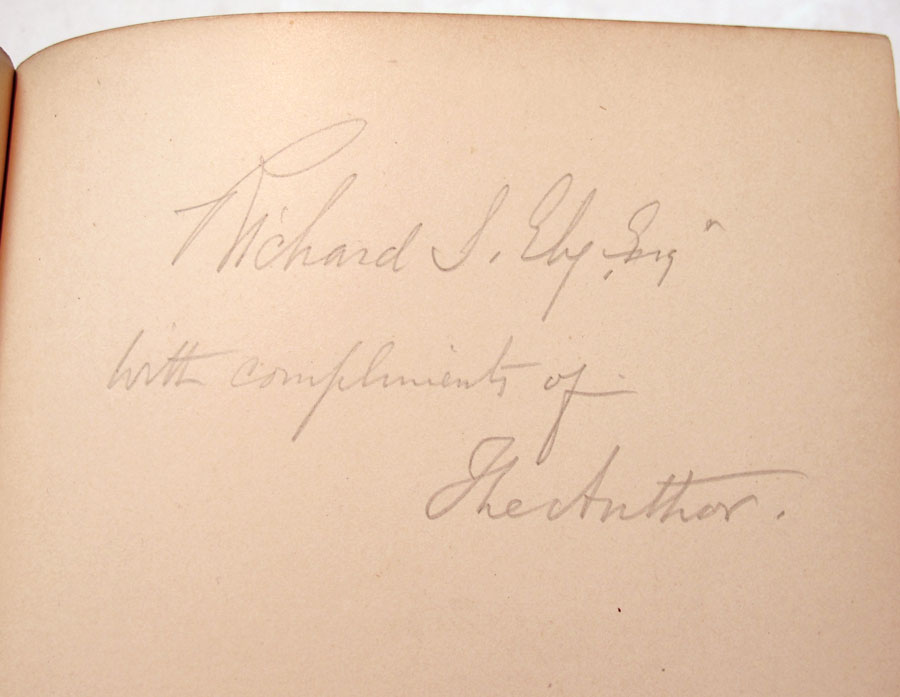 Richard S. Ely, Esqr
With compliments of
The Author.